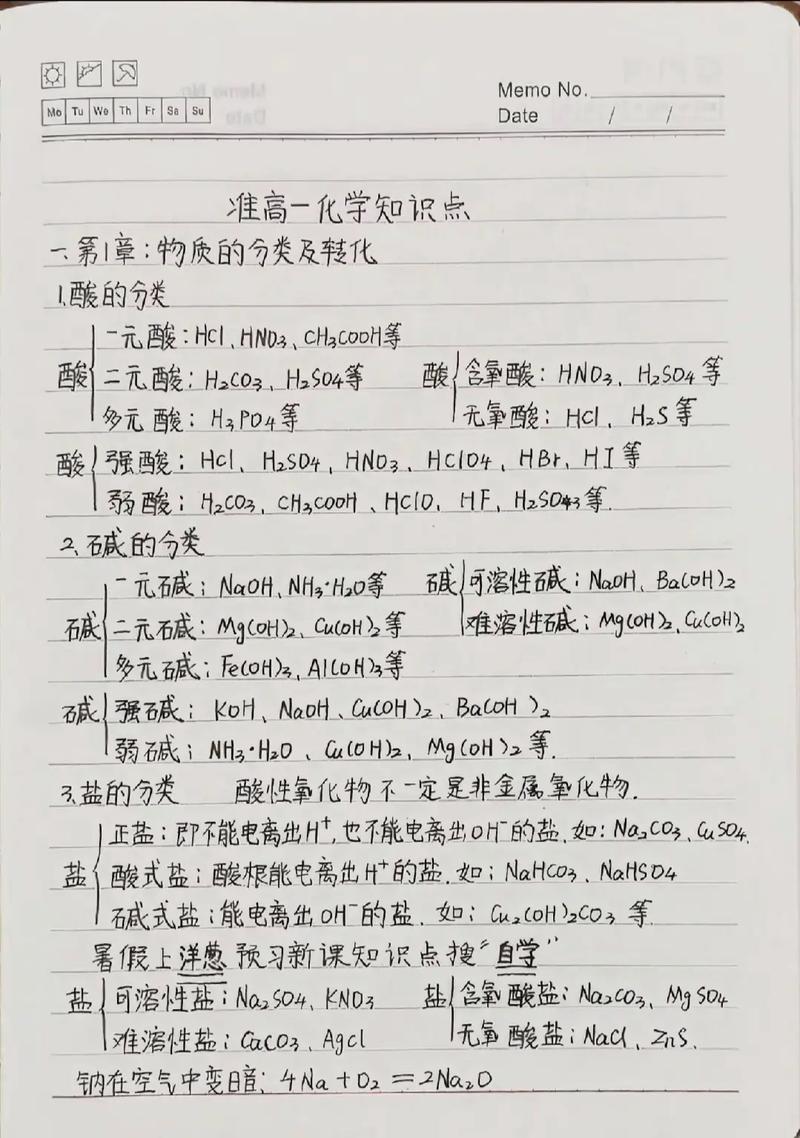 Memo No.
Mo Tu We Th Fr Sa Su
Date / /
准高一化学知识点
一、第1章：物质的分类及转化
1.酸的分类
酸 一元酸：HCl、HNO3、CH3COOH等
二元酸：H2CO3、H2SO4等
多元酸：H3PO4等
酸 含氧酸：HNO3、H2SO4等
无氧酸：HCl、H2S等
酸 强酸：HCl、H2SO4、HNO3、HClO4、HBr、HI等
弱酸：H2CO3、CH3COOH、HClO、HF、H2SO3等.
2.碱的分类
碱 一元碱：NaOH、NH3·H2O等
二元碱：Mg(OH)2、Cu(OH)2等
多元碱：Fe(OH)3、Al(OH)3等
碱 可溶性碱：NaOH、Ba(OH)2
难溶性碱：Mg(OH)2、Cu(OH)2
碱 强碱：KOH、NaOH、Cu(OH)2、Ba(OH)2
弱碱：NH3·H2O、Cu(OH)2、Mg(OH)2等.
3.盐的分类 酸性氧化物不一定是非金属氧化物.
盐 正盐：即不能电离出H⁺,也不能电离出OH⁻的盐.如：Na2CO3、CuSO4.
酸式盐：酸根能电离出H⁺的盐.如：NaHCO3、NaHSO4
碱式盐：能电离出OH⁻的盐.如：Cu2(OH)2CO3等.
暑假上洋葱预习新课知识点搜“自学”
盐 可溶性盐：Na2SO4、KNO3
难溶性盐：CaCO3、Agcl
盐 含氧酸盐：Na2CO3、MgSO4
无氧酸盐：NaCl、ZnS.
钠在空气中变暗：4Na+O2=2Na2O